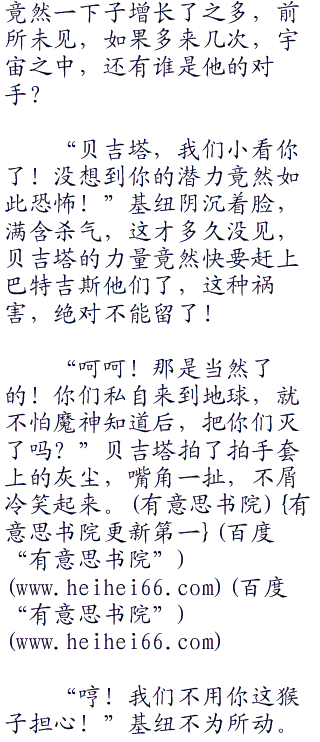 竟然一下子增长了之多，前
所未见，如果多来几次，宇
宙之中，还有谁是他的对
手？
“贝吉塔，我们小看你
了！没想到你的潜力竟然如
此恐怖！”基纽阴沉着脸，
满含杀气，这才多久没见，
贝吉塔的力量竟然快要赶上
巴特吉斯他们了，这种祸
害，绝对不能留了！
“呵呵！那是当然了
的！你们私自来到地球，就
不怕魔神知道后，把你们灭
了吗？”贝吉塔拍了拍手套
上的灰尘，嘴角一扯，不屑
冷笑起来。(有意思书院){有
意思书院更新第一}(百度
“有意思书院”)
(www.heihei66.com)(百度
“有意思书院”)
(www.heihei66.com)
“哼！我们不用你这猴
子担心！”基纽不为所动。